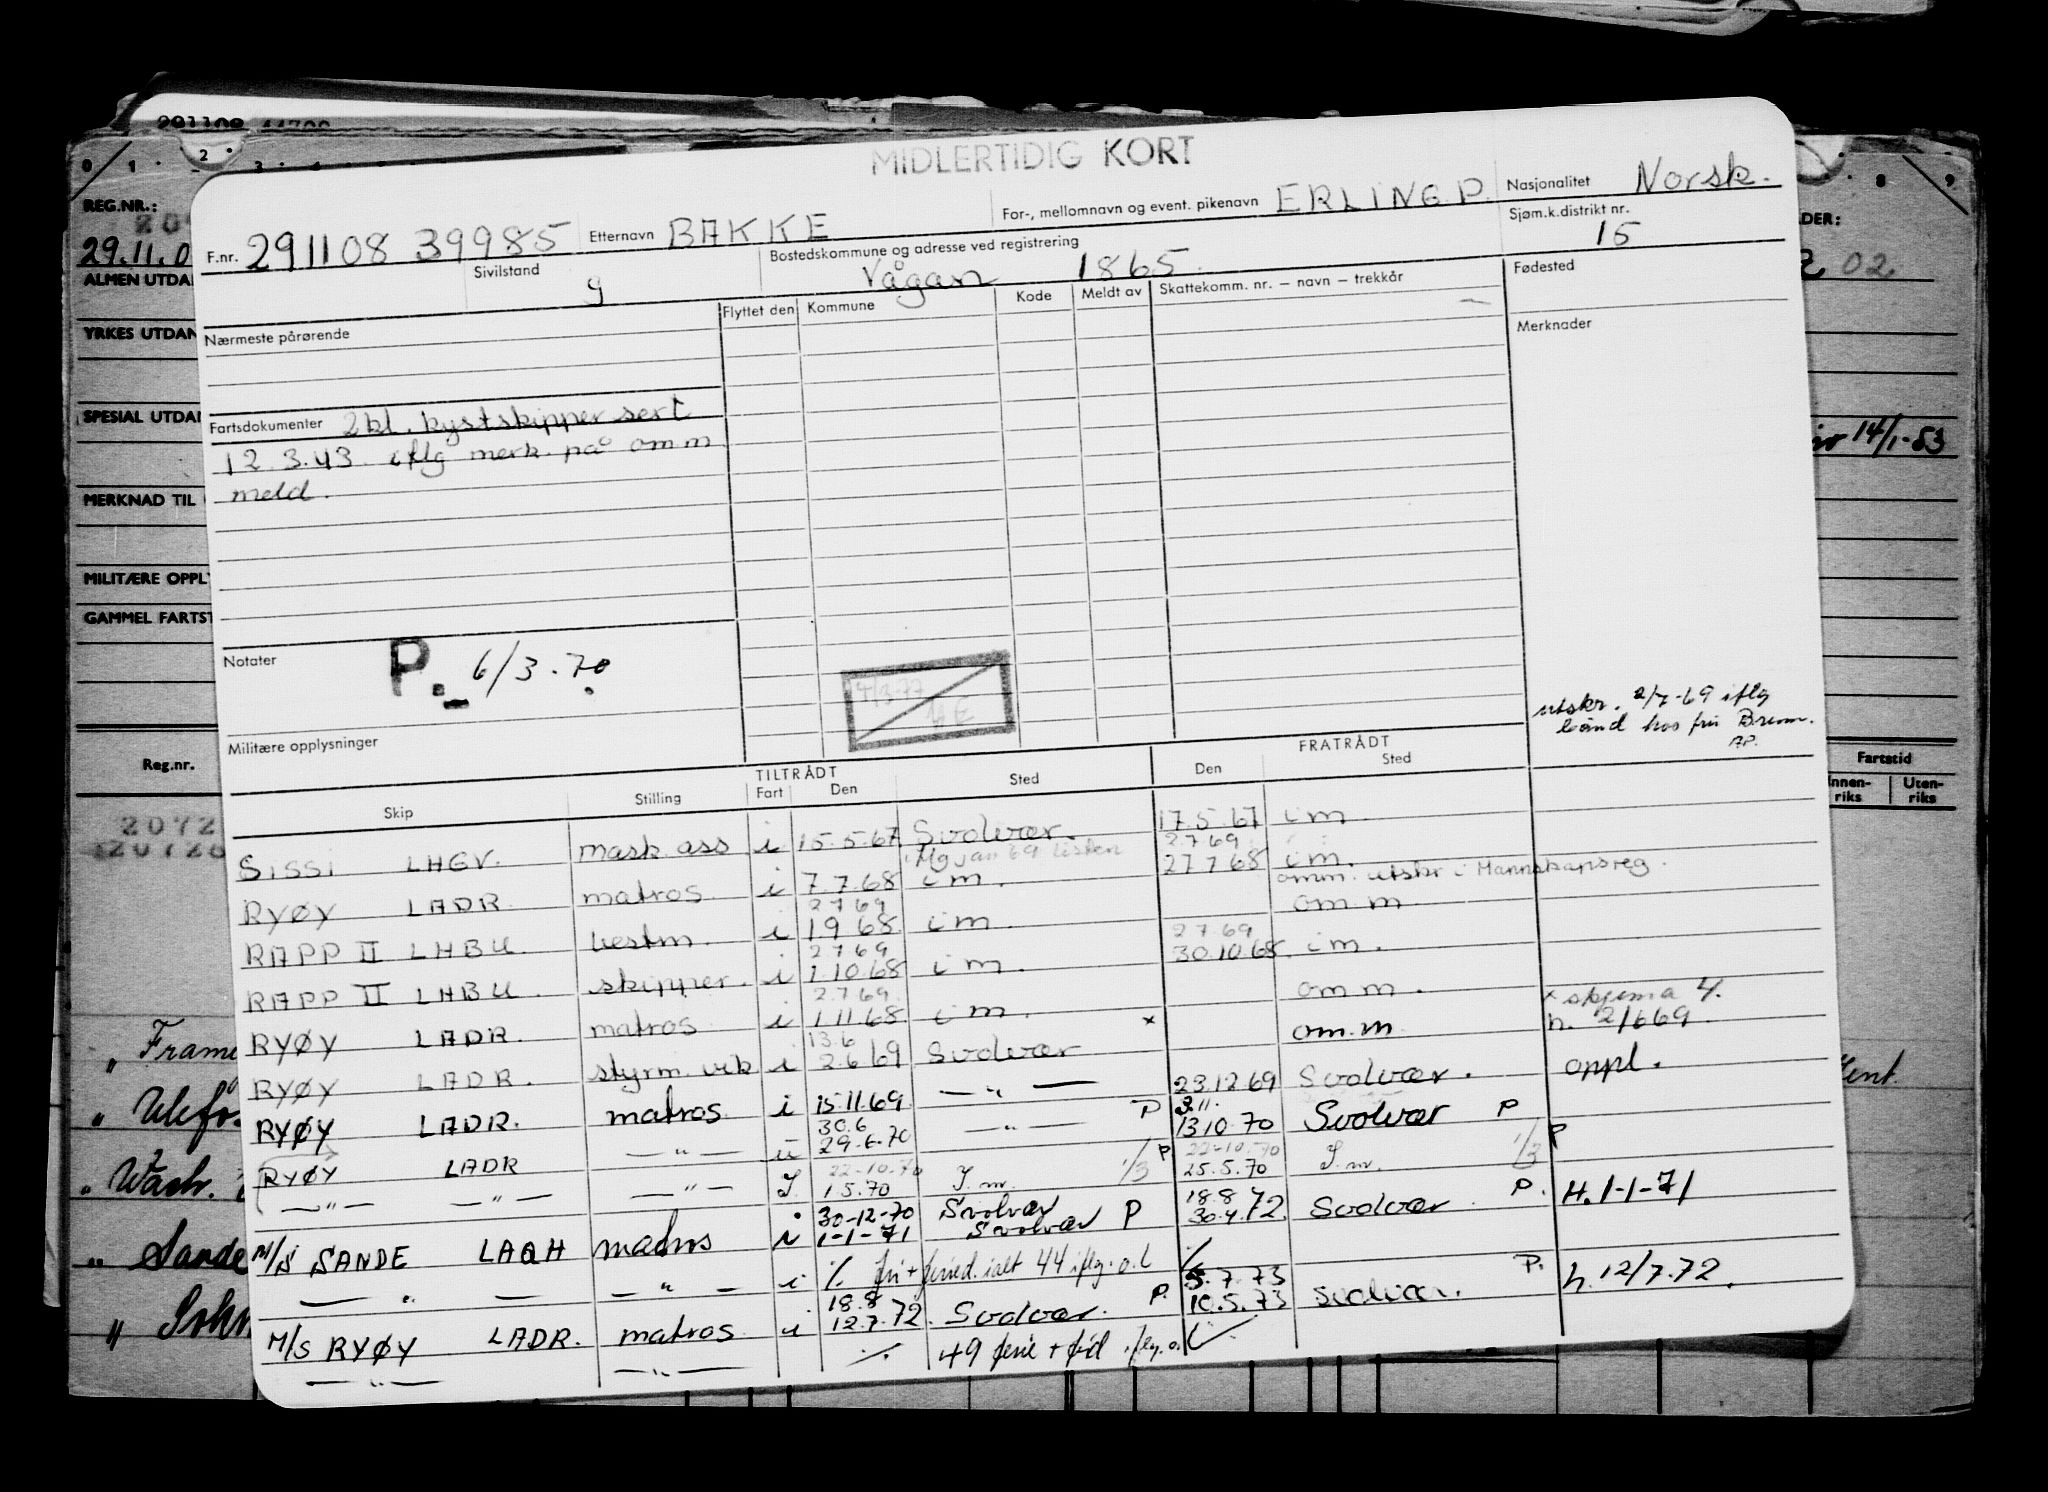 291108
MIDLERTIDIG KORT
F.nr. 291108 39985 Etternavn BAKKE For-, mellomnavn og event. pikenavn ERLING P. Nasjonalitet Norsk.
Sivilstand g Bostedskommune og adresse ved registrering Vågan 1865 Sjøm.k.distrikt nr. 15
Nærmeste pårørende Flyttet den Kommune Kode Meldt av Skattekomm. nr. – navn – trekkår Fødested
Merknader
Fartsdokumenter 2 kl. kystskipper sert
12.3.43 iflg merk. på omm
meld.
Notater P. 6/3-70
Militære opplysninger
utskr. 2/7-69 iflg
bånd hos fru Brem.
AP.
TILTRÅDT FRATRÅDT
Skip Stilling Fart Den Sted Den Sted
SISSI LHGV. mask.ass i 15.5.67 Svolvær. 17.5.67 i m
iflg jan 69 listen 2.7.69
RYØY LADR matros i 7.7.68 i m. 27.7.68 i m.
omm. utskr i Mannskapsreg.
2.7.69
RAPP II LHBU bestm. i 1.9.68 i m om m
2.7.69 2.7.69
RAPP II LHBU. skipper. i 1.10.68 i m. 30.10.68. i m.
2.7.69
RYØY LADR. matros i 1.11.68 i m. om m.
13.6
RYØY LADR. styrm. vik i 2.6.69 Svolvær x om.m x skjema 4.
h. 2/6 69.
RYØY LADR. matros i 15.11.69 — " — 23.12.69 Svolvær. oppl.
30.6 3.11.
RYØY LADR — " — i 29.6.70 — " — P 13.10.70 Svolvær P
22-10.70 22-10.70
— " — — " — — " — I. 1.5.70 I. m. 1/3 P 25.5.70 I. m. 1/3 P
30-12-70 Svolvær 18.8
M/S SANDE LAQH matros i 1-1-71 Svolvær P 30.4.72. Svolvær. P. H. 1-1-71
— " — — " — i % fri + feried. ialt 44 iflg. o.l %
18.8 5.7.73
M/S RYØY LADR. matros i 12.7.72. Svolvær. P. 10.5.73 Svolvær. P. h. 12/7.72.
— " — — " — 49 ferie + frid iflg. o.l
REG.NR.:
29.11.0
ALMEN UTDA
YRKES UTDAN
SPESIAL UTDA
MERKNAD TIL
MILITÆRE OPPLY
GAMMEL FARTST
Reg.nr.
2072
20720
DER:
02
14/1-53
Fartstid
Innen-riks Uten-riks
" Sande